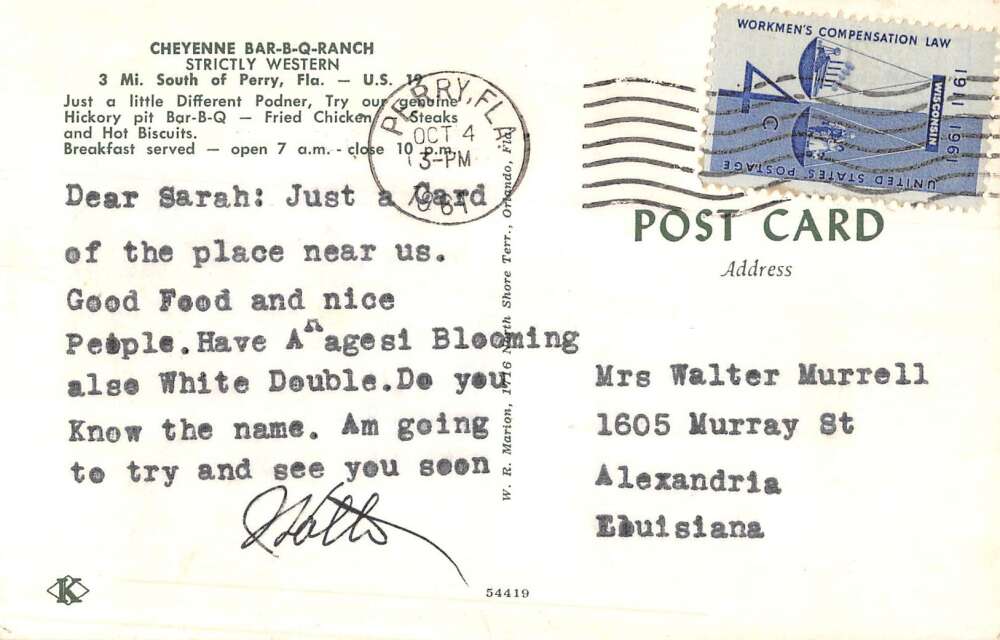 CHEYENNE BAR-B-Q-RANCH
STRICTLY WESTERN
3 Mi. South of Perry, Fla. — U.S. 19
Just a little Different Podner, Try our genuine
Hickory pit Bar-B-Q — Fried Chicken Steaks
and Hot Biscuits.
Breakfast served — open 7 a.m. - close 10 p.m.
PERRY, FLA.
OCT 4
3-PM
1961
WORKMEN'S COMPENSATION LAW
4c
WISCONSIN
1911 1961
UNITED STATES POSTAGE
POST CARD
Address
Dear Sarah: Just a Card
of the place near us.
Good Food and nice
People.Have A^n agesi Blooming
also White Double.Do you
Know the name. Am going
to try and see you soon
W. R. Marion, 1716 North Shore Terr., Orlando, Fla.
Mrs Walter Murrell
1605 Murray St
Alexandria
Louisiana
K
54419